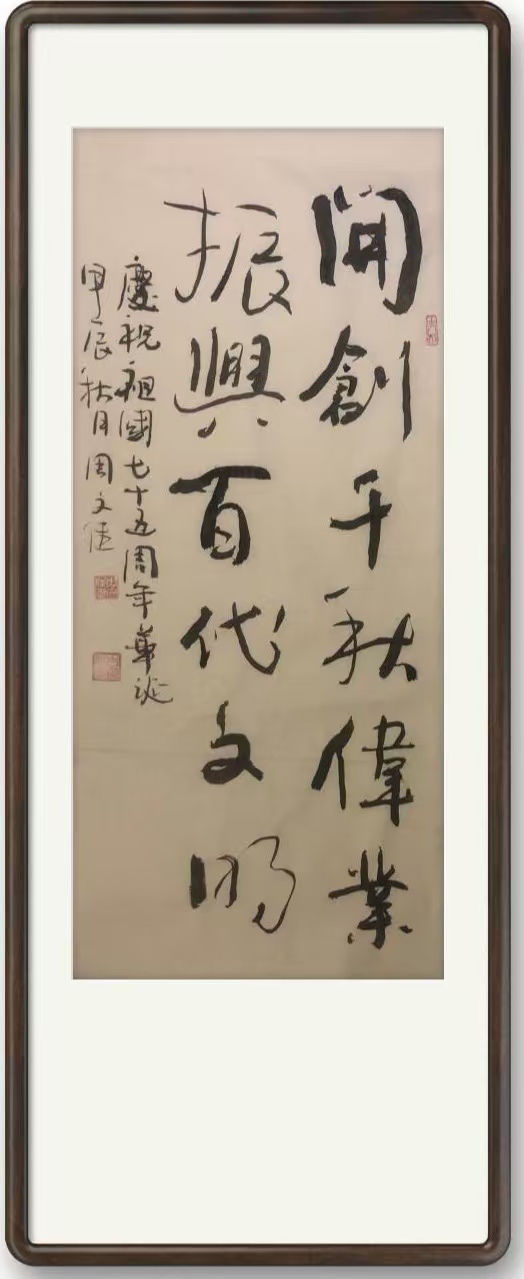 開創千秋偉業
振興百代文明
慶祝祖國七十五周年華誕
甲辰秋月周文